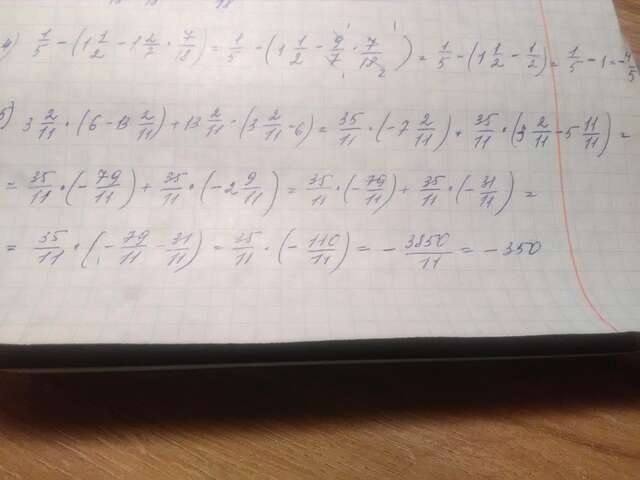 4) 1/5 - (1 1/2 - 1 2/7 · 7/18) = 1/5 - (1 1/2 - 9/7 · 7/18) = 1/5 - (1 1/2 - 1/2) = 1/5 - 1 = -4/5
5) 3 2/11 · (6 - 13 2/11) + 13 2/11 · (3 2/11 - 6) = 35/11 · (-7 2/11) + 35/11 · (3 2/11 - 5 11/11) =
= 35/11 · (-79/11) + 35/11 · (-2 9/11) = 35/11 · (-79/11) + 35/11 · (-31/11) =
= 35/11 · (-79/11 - 31/11) = 35/11 · (-110/11) = -3850/11 = -350